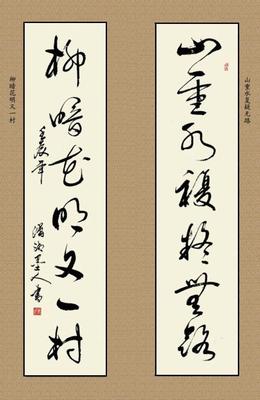 山重水复疑无路
山重水複疑無路
柳暗花明又一村
壬辰年
柳暗花明又一村